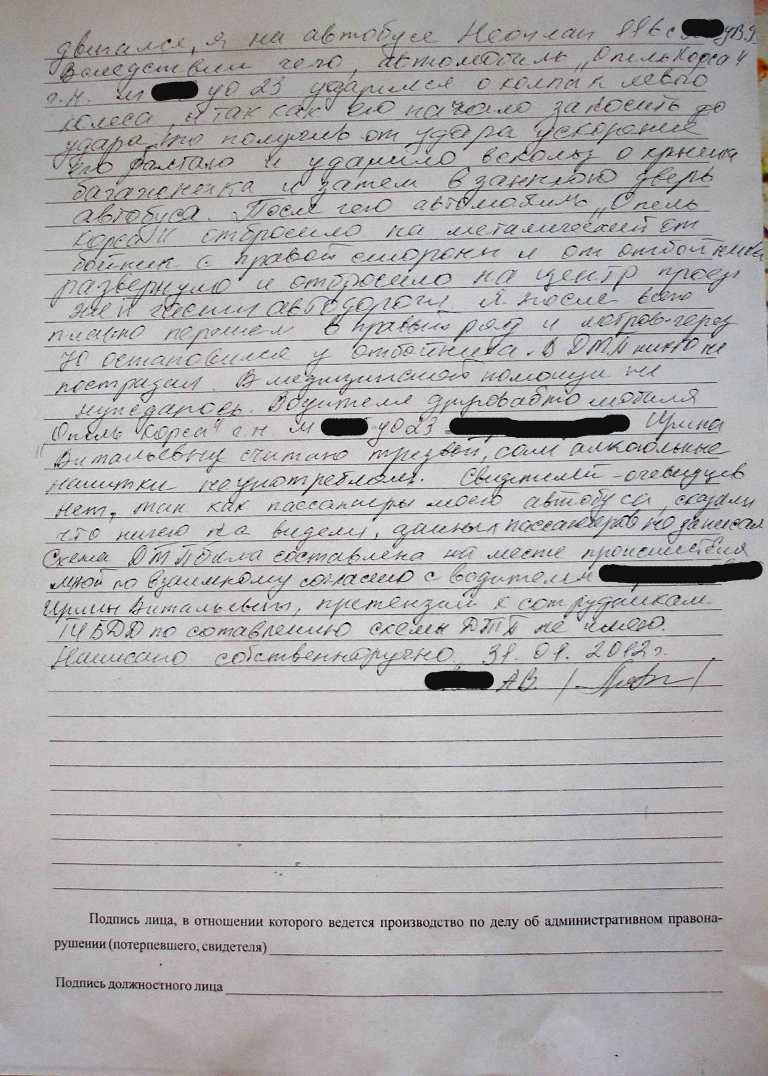 двигался, я на автобусе Неоплан 116 с
Вследствии чего, автомобиль "Опель Корса"
г.н. м уо 23 ударился о колпак левого
колеса, а так как его начало заносить до
удара, то получив от удара ускорение
его и ударило вскользь о крышки
багажника и затем в заднюю дверь
автобуса. После чего автомобиль "Опель
Корса" отбросило на металический от
бойник с правой стороны и от отбойника
развернуло и отбросило на центр проез
жей части автодороги. Я после всего
плавно перешел в правый ряд и метров через
70 остановился у отбойника. В ДТП никто не
пострадал. В медицинской помощи не
нуждаюсь. Водителя другова авто мобиля
"Опель Корса" г.н м уо 23 Ирина
Витальевну считаю трезвой, сам алкагольные
напитки не употреблял. Свидетелей-очевидцев
нет, так как пассажиры моего автобуса, сказали
что ничего не видели, данных пассажиров не записал
Схема ДТП была составлена на месте происшествия
мной по взаимному согласию с водителем
Ирины Витальевны, претензий к сотрудникам
ГИБДД по сотавлению схемы ДТП не имею.
Написано собственноручно 31. 01. 2012 г.
А.В. /
Подпись лица, в отношении которого ведется производство по делу об административном правона-
рушении (потерпевшего, свидетеля)
Подпись должностного лица